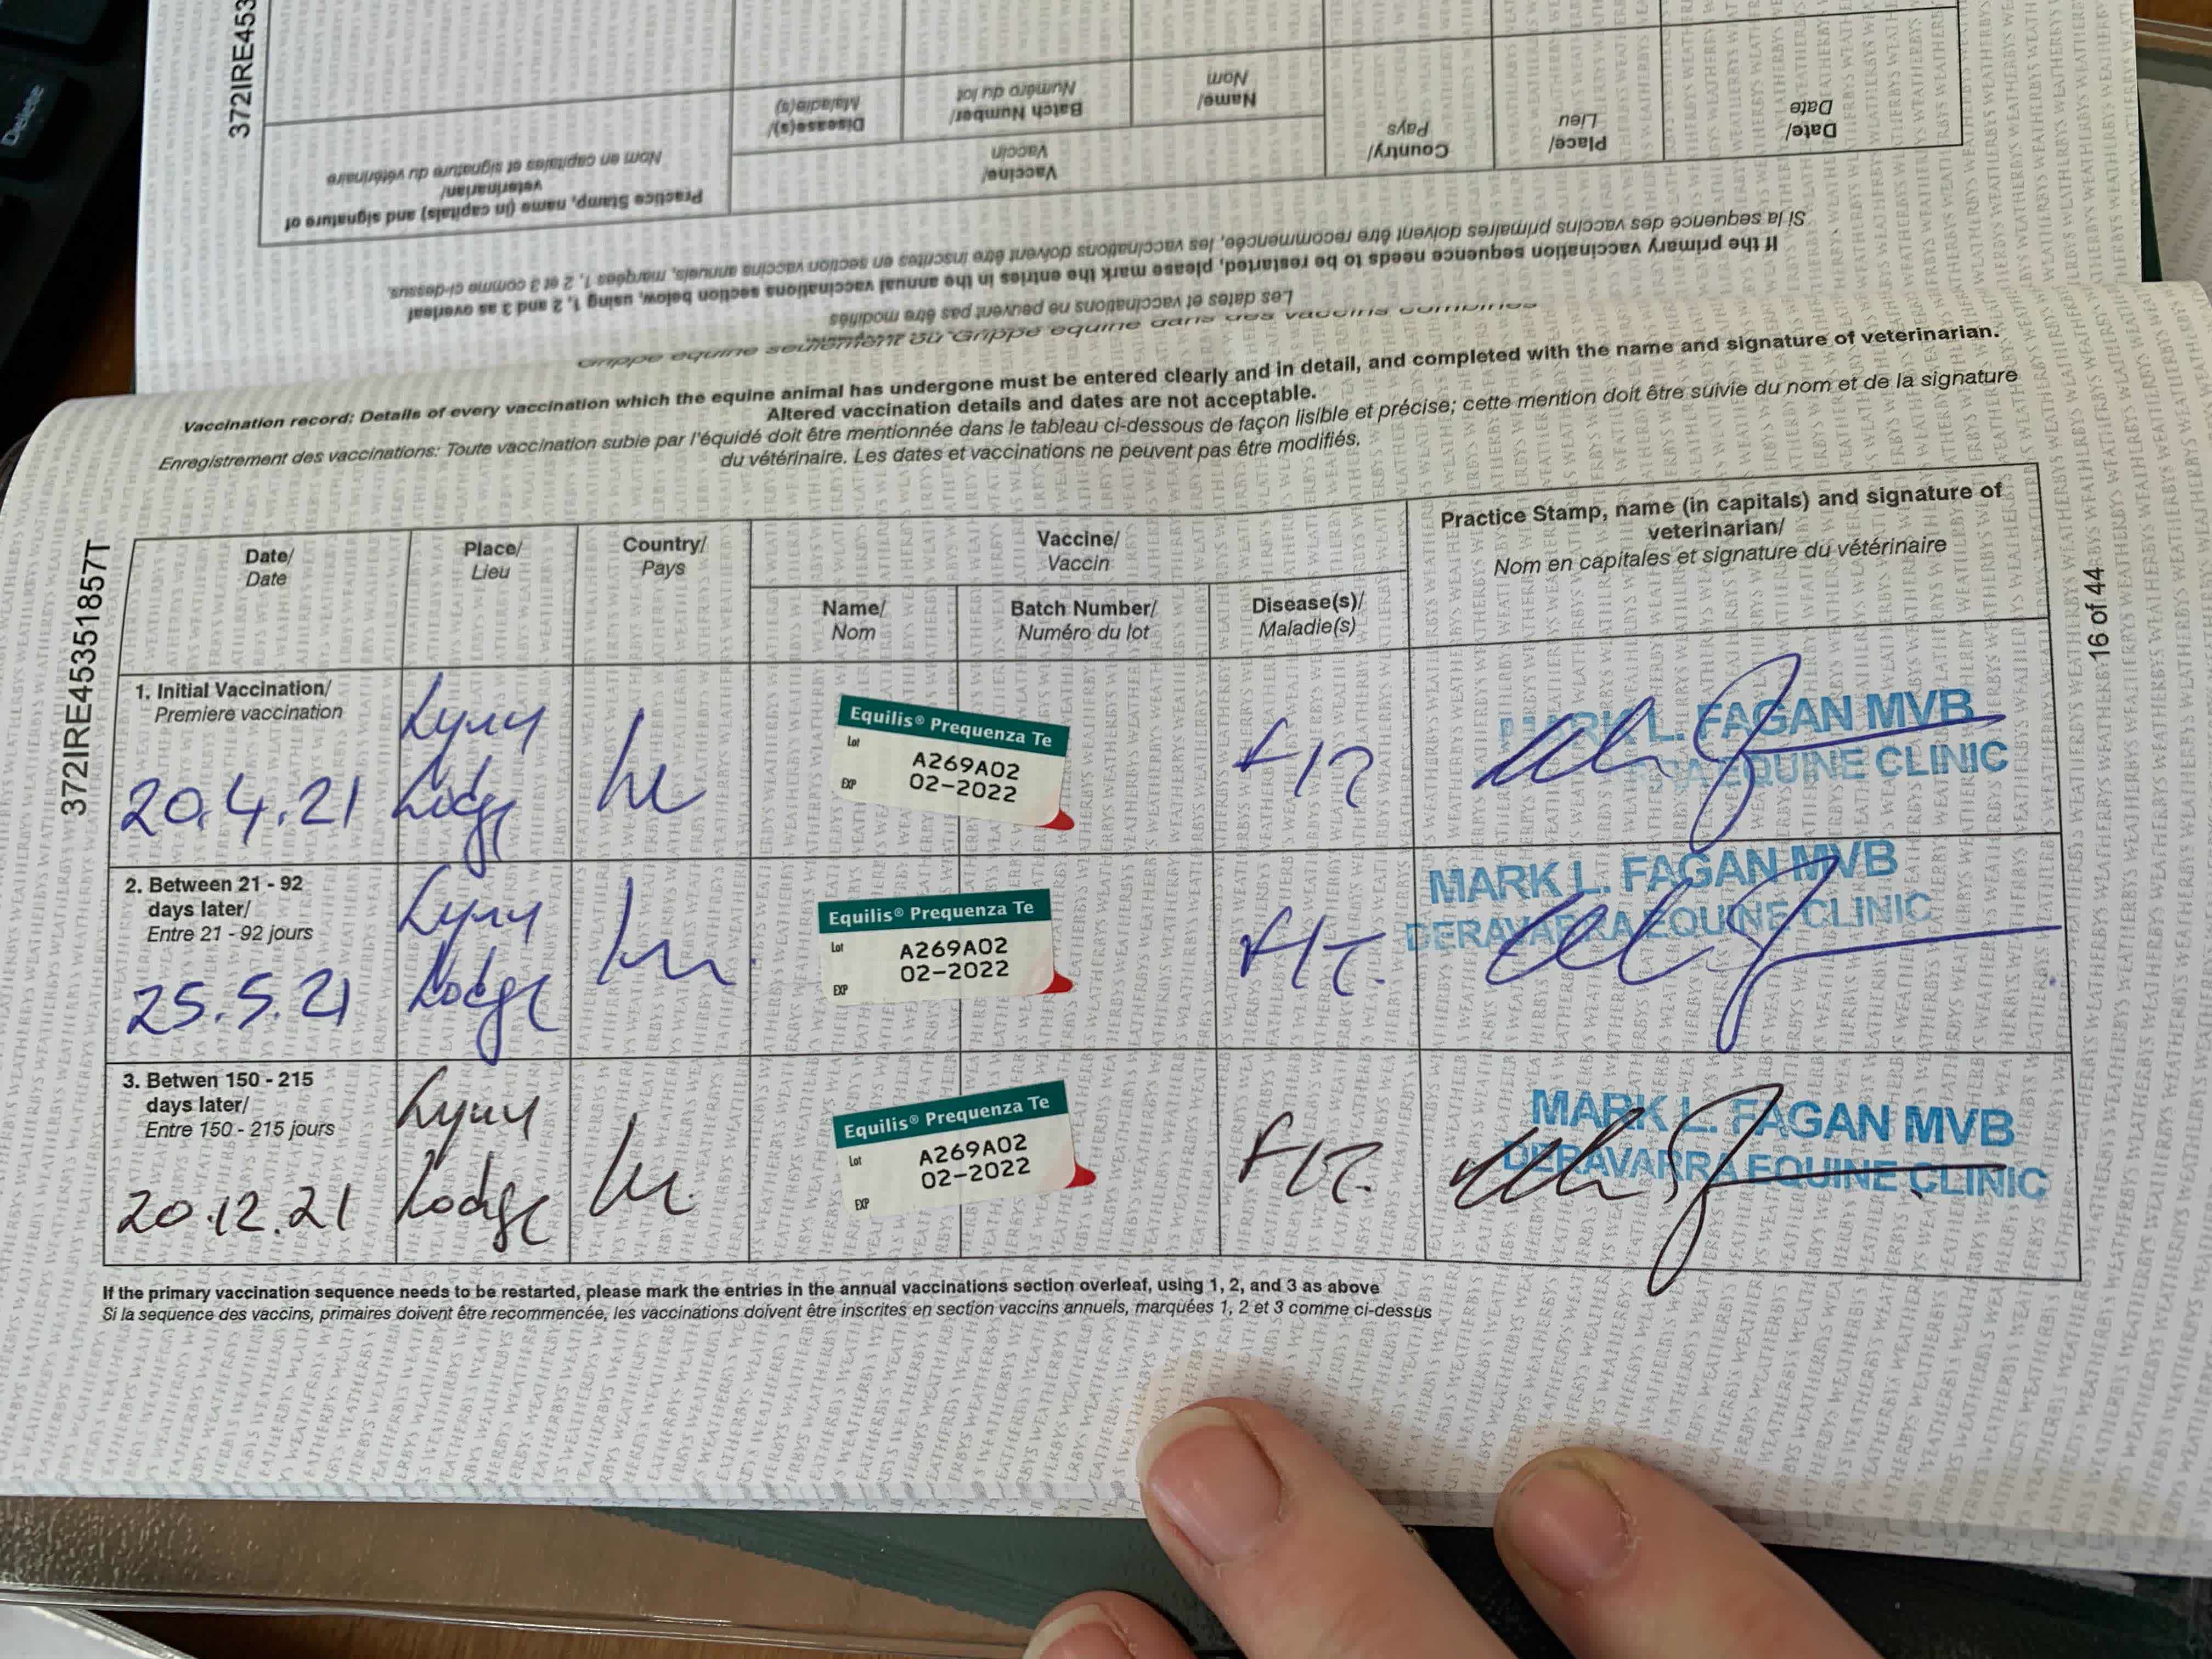 Delete
372IRE453
Date/
Date
Place/
Lieu
Country/
Pays
Vaccine/
Vaccin
Name/
Nom
Batch Number/
Numéro du lot
Disease(s)/
Maladie(s)
Practice Stamp, name (in capitals) and signature of
veterinarian/
Nom en capitales et signature du vétérinaire
If the primary vaccination sequence needs to be restarted, please mark the entries in the annual vaccinations section below, using 1, 2 and 3 as overleaf
Si la sequence des vaccins primaires doivent être recommencée, les vaccinations doivent être inscrites en section vaccins annuels, marquées 1, 2 et 3 comme ci-dessus.
Les dates et vaccinations ne peuvent pas être modifiés
Grippe equine seulement ou Grippe equine dans des vaccins combinés
Vaccination record: Details of every vaccination which the equine animal has undergone must be entered clearly and in detail, and completed with the name and signature of veterinarian.
Altered vaccination details and dates are not acceptable.
Enregistrement des vaccinations: Toute vaccination subie par l'équidé doit être mentionnée dans le tableau ci-dessous de façon lisible et précise; cette mention doit être suivie du nom et de la signature
du vétérinaire. Les dates et vaccinations ne peuvent pas être modifiés.
372IRE45351857T
16 of 44
Date/
Date
Place/
Lieu
Country/
Pays
Vaccine/
Vaccin
Name/
Nom
Batch Number/
Numéro du lot
Disease(s)/
Maladie(s)
Practice Stamp, name (in capitals) and signature of
veterinarian/
Nom en capitales et signature du vétérinaire
1. Initial Vaccination/
Premiere vaccination
20.4.21
Lynn
Lodge
Equilis® Prequenza Te
Lot A269A02
EXP 02-2022
MARK L. FAGAN MVB
EQUINE CLINIC
2. Between 21 - 92
days later/
Entre 21 - 92 jours
25.5.21
Lynn
Lodge
Equilis® Prequenza Te
Lot A269A02
EXP 02-2022
MARK L. FAGAN MVB
DERAVARRA EQUINE CLINIC
3. Betwen 150 - 215
days later/
Entre 150 - 215 jours
20.12.21
Lynn
Lodge
Equilis® Prequenza Te
Lot A269A02
EXP 02-2022
MARK L. FAGAN MVB
DERAVARRA EQUINE CLINIC
If the primary vaccination sequence needs to be restarted, please mark the entries in the annual vaccinations section overleaf, using 1, 2, and 3 as above
Si la sequence des vaccins, primaires doivent être recommencée, les vaccinations doivent être inscrites en section vaccins annuels, marquées 1, 2 et 3 comme ci-dessus